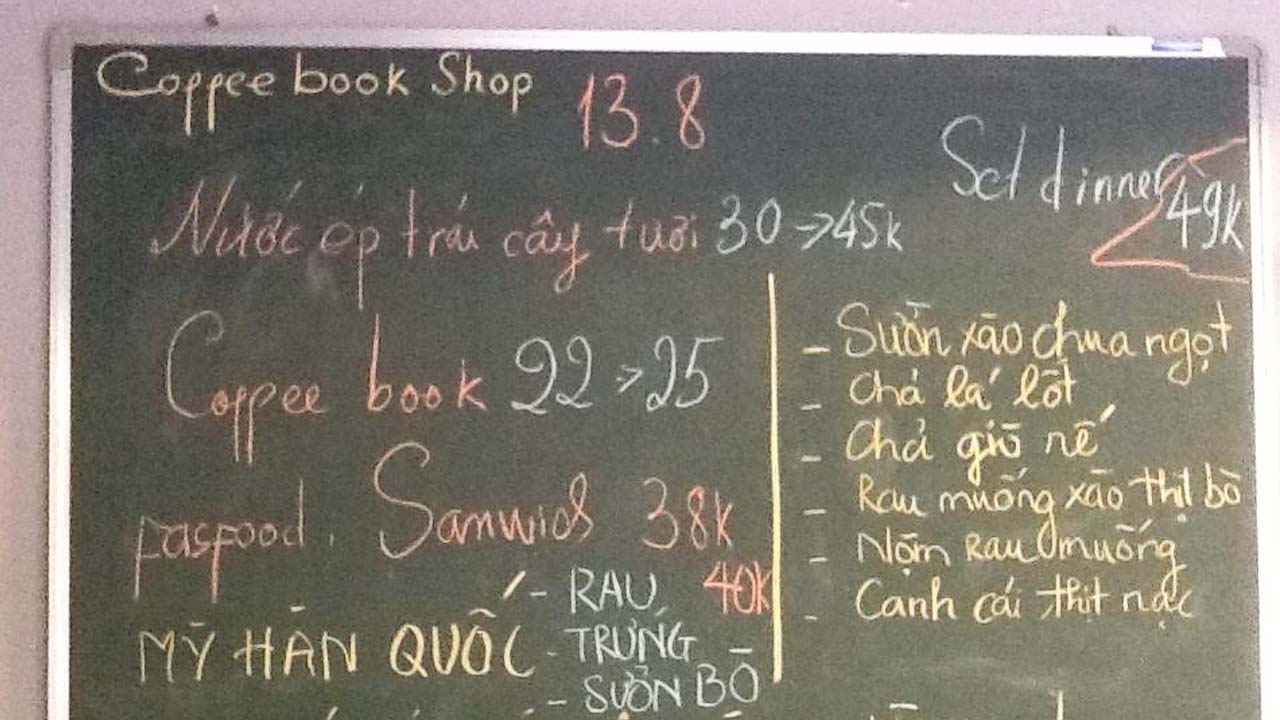 Coffee book Shop
13.8
Nước ép trái cây tươi 30 → 45k
Coffee book 22 > 25
fasfood, Sanwids 38k
MỲ HÀN QUỐC
- RAU 40k
- TRỨNG
- SƯỜN BÒ
Set dinner 49k
- Sườn xào chua ngọt
- Chả lá lốt
- Chả giò rế
- Rau muống xào thịt bò
- Nộm Rau muống
- Canh cải thịt nạc